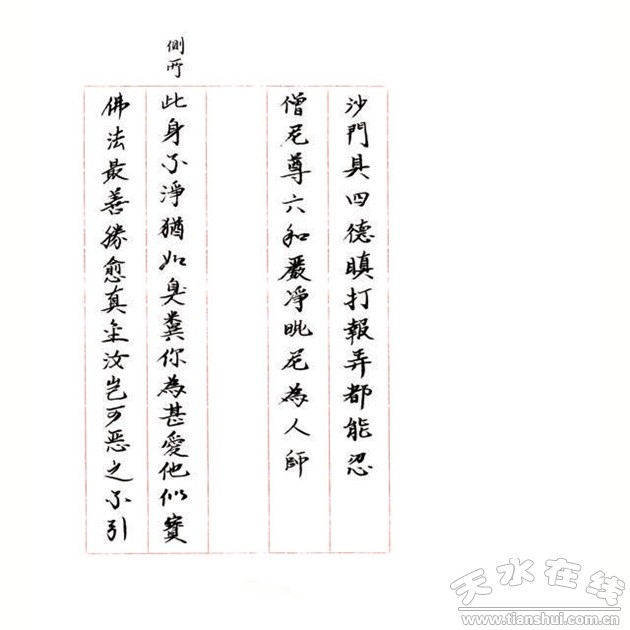 沙門具四德瞋打報弄都能忍
僧尼尊六和嚴凈毗尼為人師
側所
此身不淨猶如臭糞你為甚愛他似寶
佛法最善勝愈真金汝岂可惡之不引
天水在线
www.tianshui.com.cn